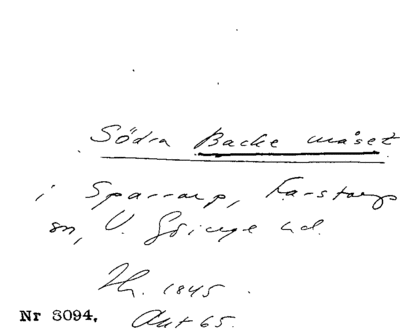 Södra Backe måset
i Sparrarp, Farstorps
sn, V. Göinge hd.
Hh. 1845.
Nr 3094. Akt 65.